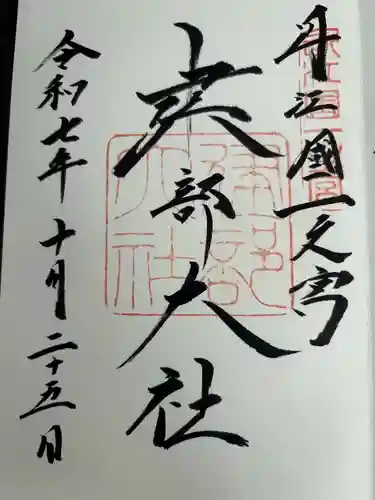 近江國一之宮
建部大社
令和七年十月二十五日
建部
大社